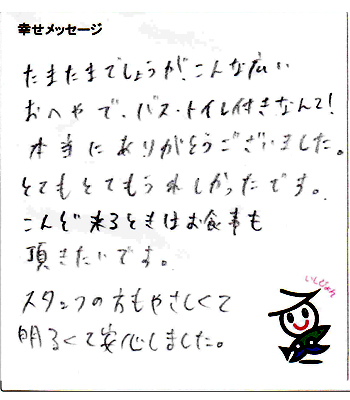 幸せメッセージ
たまたまでしょうが、こんな広い
おへやで、バス・トイレ付きなんて!
本当にありがとうございました。
とてもとてもうれしかったです。
こんど来るときはお食事も
頂きたいです。
スタッフの方もやさしくて
明るくて安心しました。